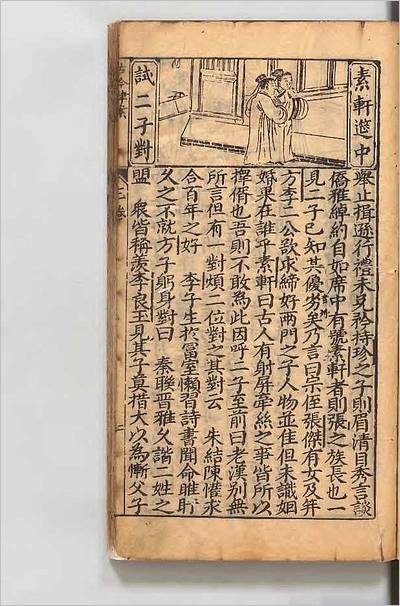 素軒遊中
試二子對
舉止揖遜行禮未免矜持珍之子則眉清目秀言談
儒雅綽約自如席中有號素軒者則張之族長也一
見二子已知其優劣矣乃言曰宗侄張傑有女及笄
方李二公欲求締好兩門之子人物並佳但未識姻
婚果在誰乎素軒曰古人有射屏牽絲之事皆所以
擇婿也吾則不敢為此因呼二子至前曰老漢別無
所言但有一對煩二位對之其對云 朱結陳懽求
合百年之好 李子生於富室懶習詩書聞命睢盱
久之不就方子躬身對曰 秦聯晉雅久諧二姓之
盟 衆皆稱羨李良玉見其子莫措大以為慚父子
三卷
二